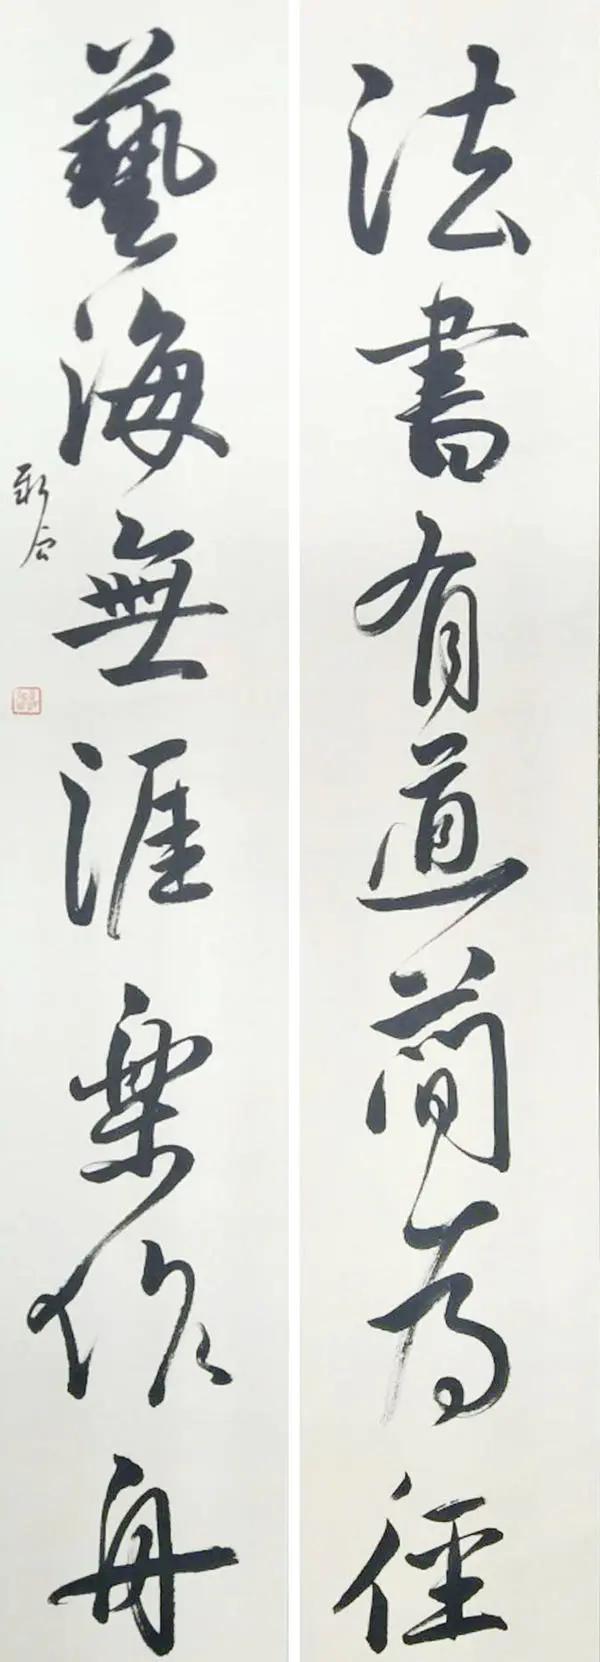 法書有道簡為徑
藝海無涯樂作舟